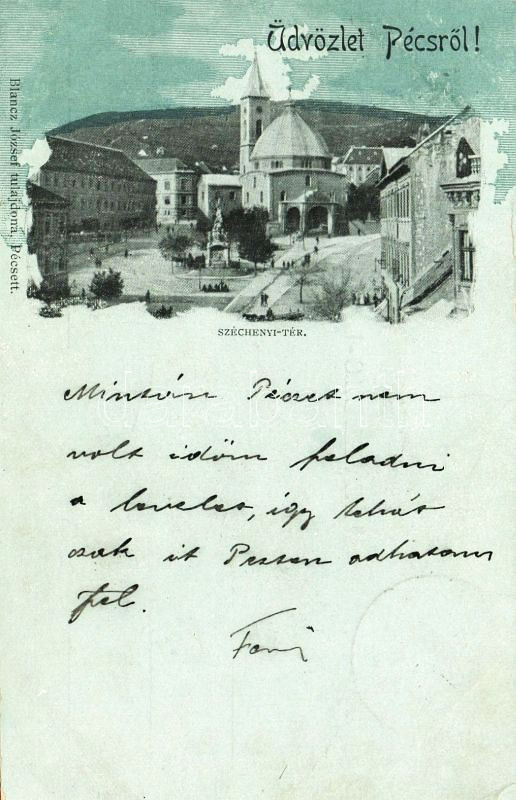 Üdvözlet Pécsről!
Blancz József tulajdona, Pécsett.
SZÉCHENYI-TÉR.
Mintán Pécset nem
volt időm feladni
a levelet, így tehát
csak itt Pesten adhatom
fel.